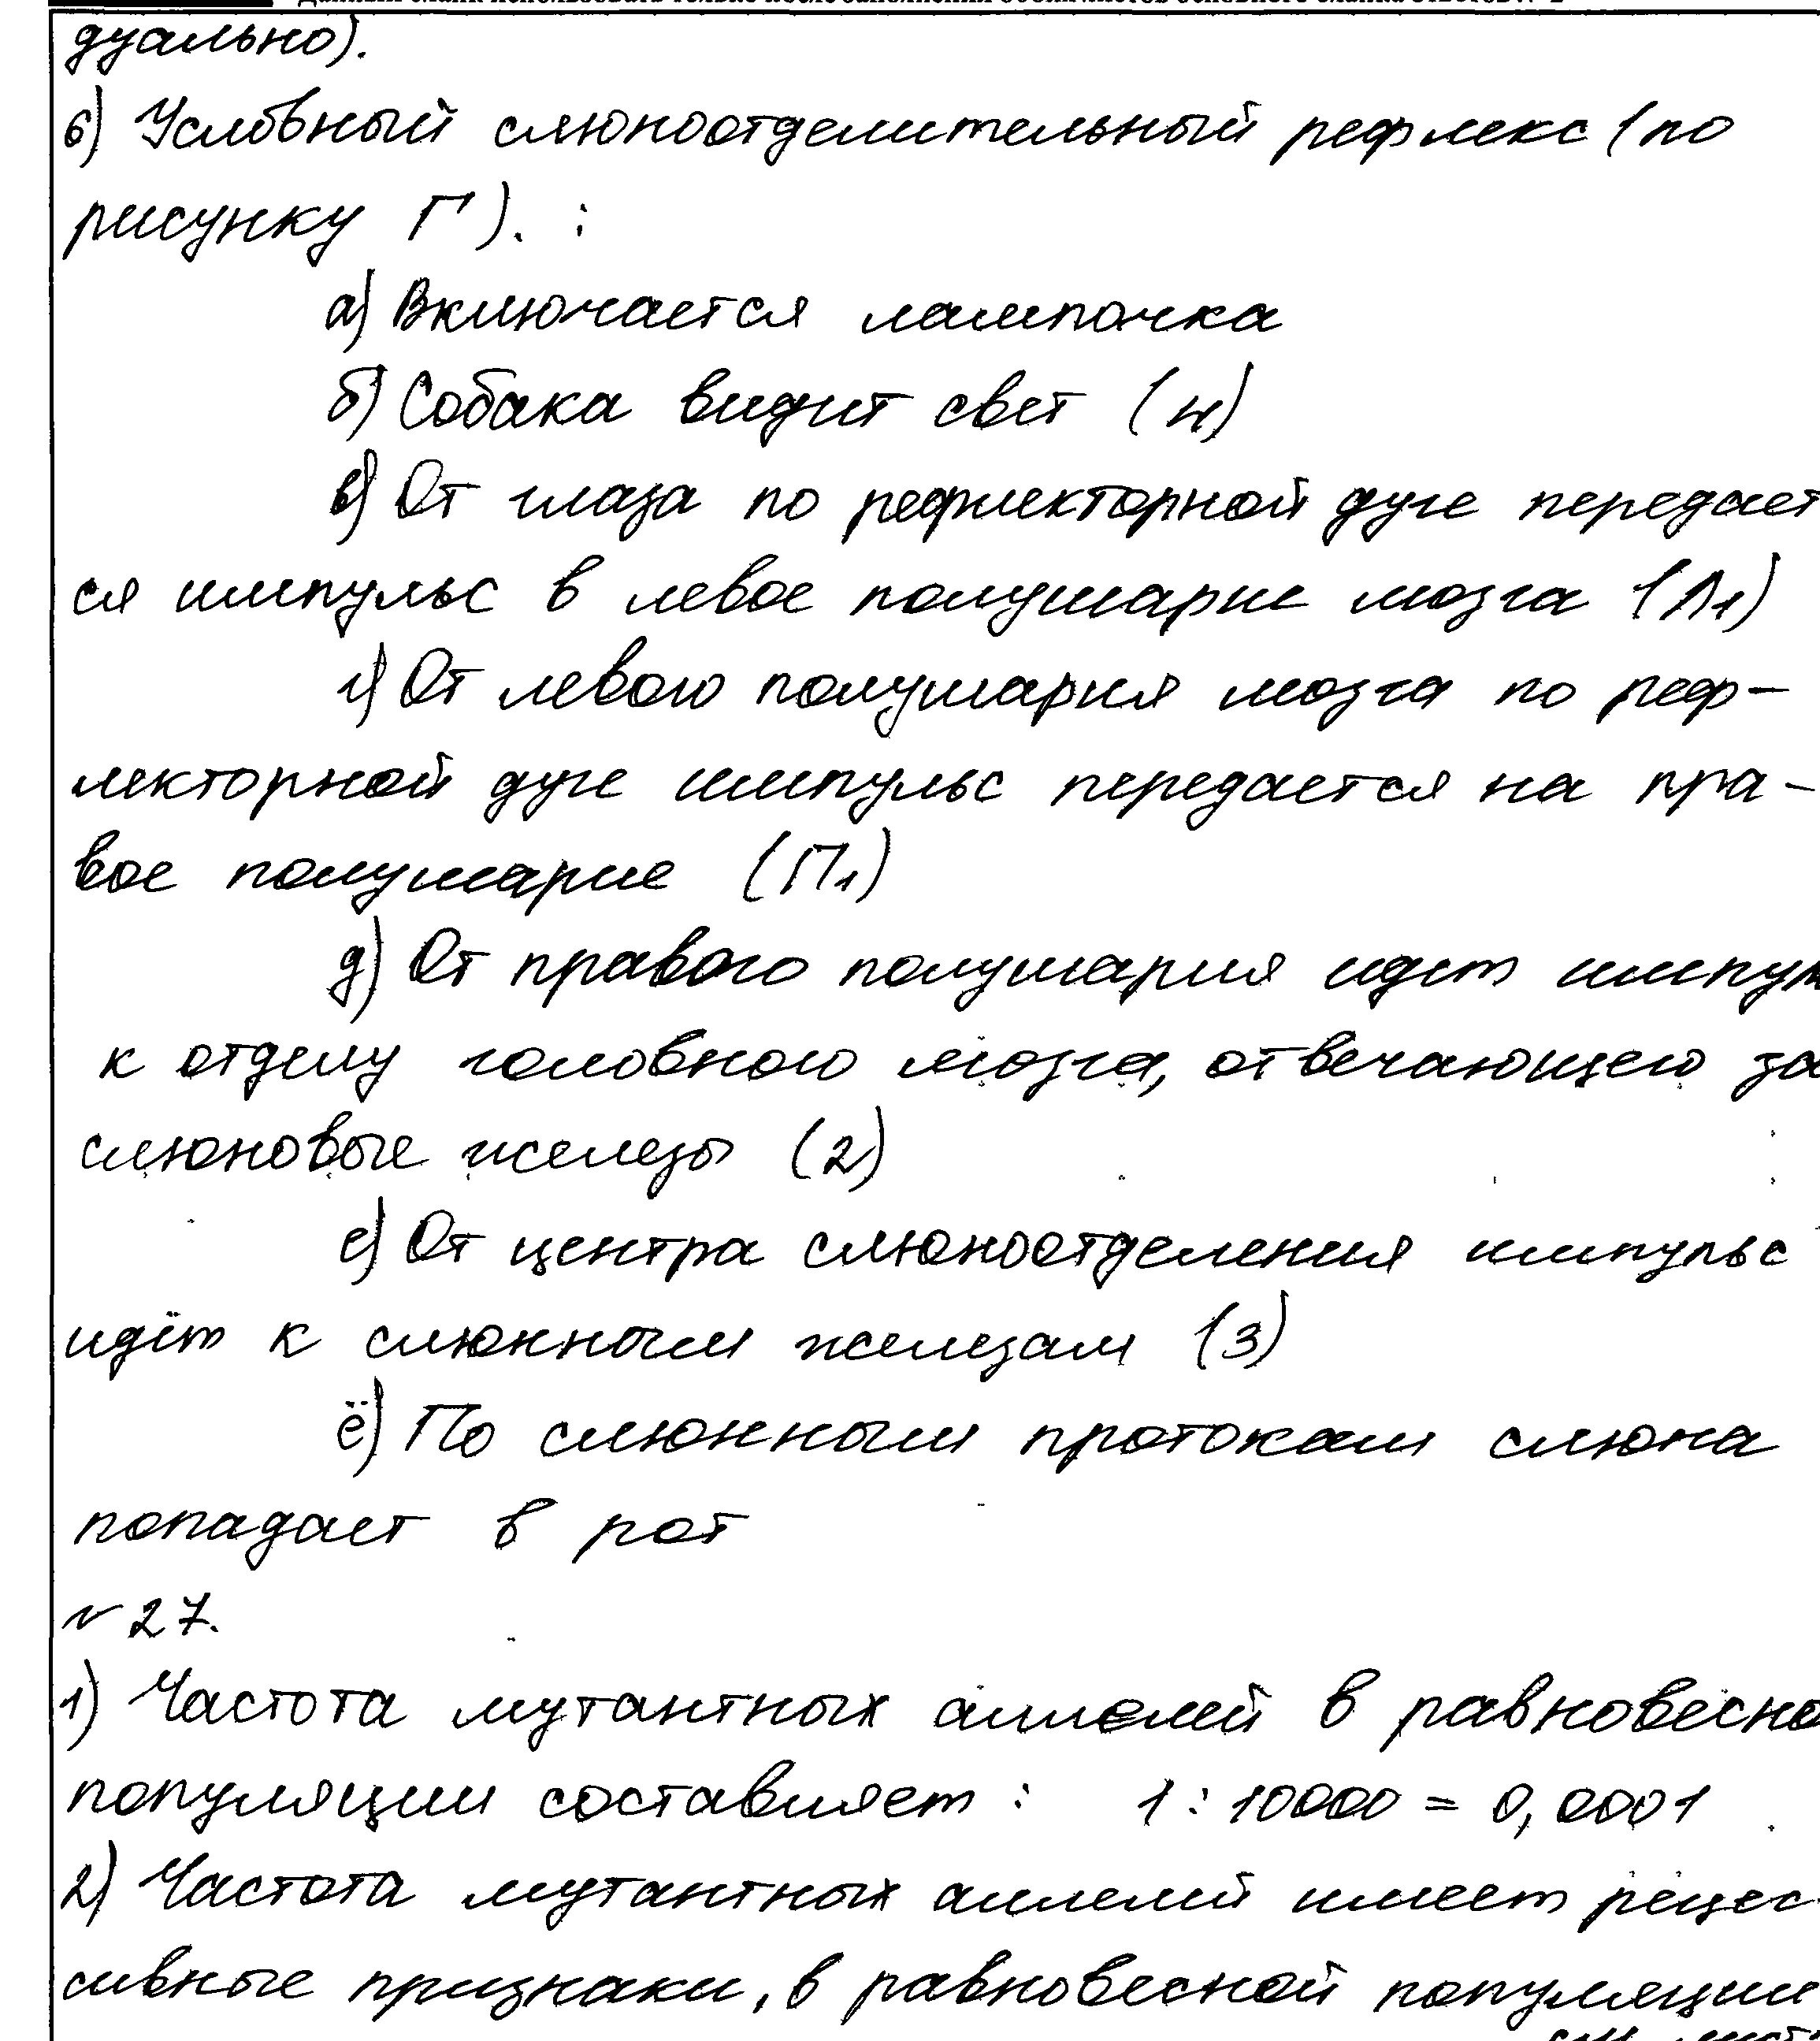 дуально).
6) Условный слюноотделительный рефлекс (по
рисунку Г). :
а) Включается лампочка
б) Собака видит свет (н)
в) От глаза по рефлекторной дуге передает
ся импульс в левое полушарие мозга (Л1)
г) От левого полушария мозга по реф-
лекторной дуге импульс передается на пра-
вое полушарие (П1)
д) От правого полушария идет импул
к отделу головного мозга, отвечающего за
слюновые железы (2)
е) От центра слюноотделения импульс
идёт к слюнным железам (3)
ё) По слюнным протокам слюна
попадает в рот
№ 27.
1) Частота мутантных аллелей в равновесно
популяции составляет : 1 : 10000 = 0,0001
2) Частота мутантных аллелей имеет рецес-
сивные признаки, в равновесной популяции